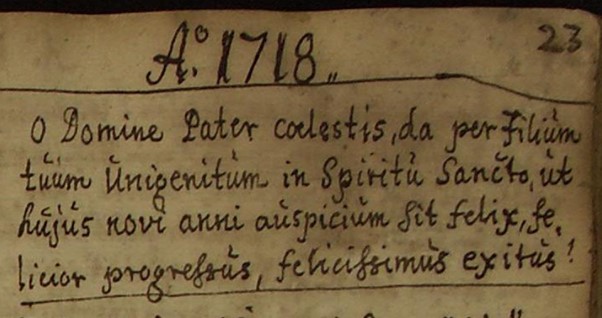 23
Aº. 1718.
O Domine Pater cœlestis, da per Filium
tuum Unigenitum in Spiritu Sancto, ut
hujus novi anni auspicium sit felix, fe,
licior progressus, felicissimus exitus!